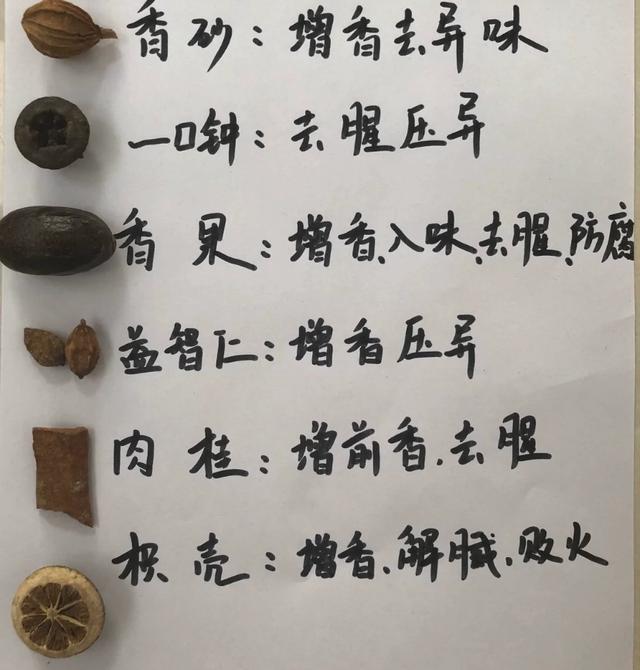 香砂：增香去异味
一口钟：去腥压异
香果：增香、入味、去腥、防腐
益智仁：增香压异
肉桂：增前香、去腥
枳壳：增香、解腻、败火